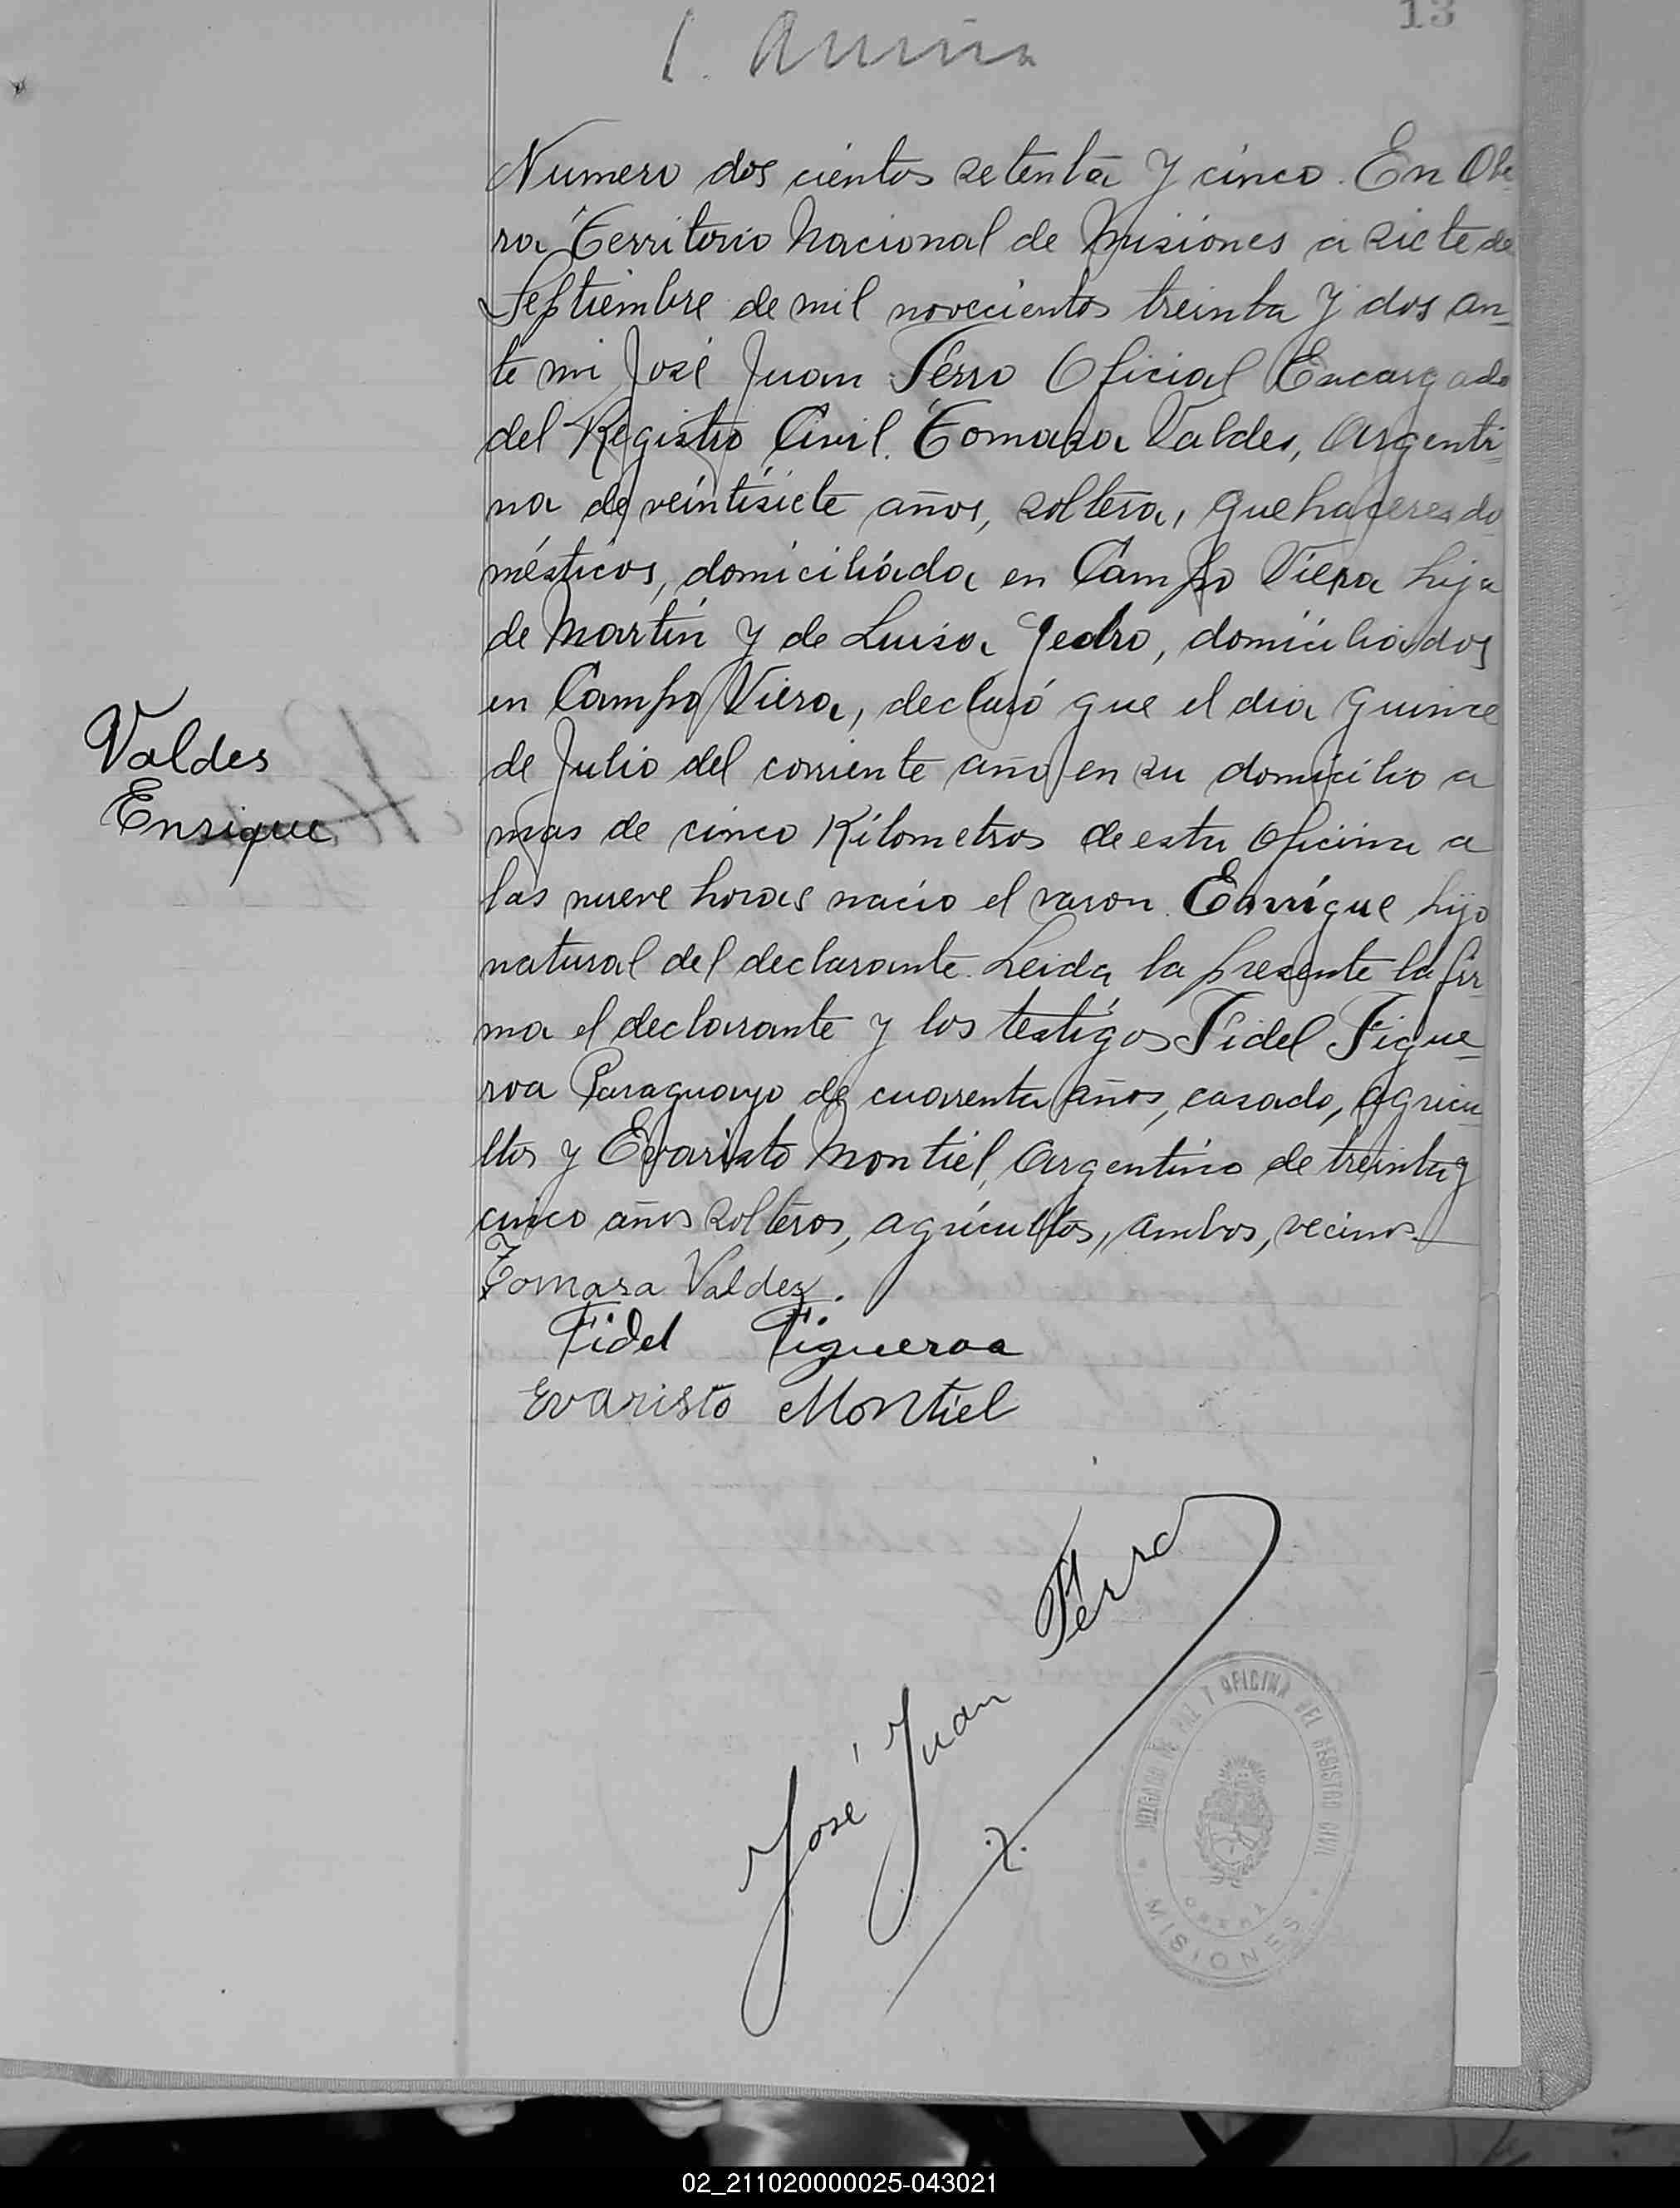 13
Numero dos cientos setenta y cinco. En Obe-
ra Territorio Nacional de Misiones a siete de
Septiembre de mil novecientos treinta y dos an-
te mi José Juan Ferro Oficial Encargado
del Registro Civil. Tomasa Valdes, Argenti-
na de veintisiete años, soltera, quehaceres do-
mésticos, domiciliada en Campo Viera hija
de Martín y de Luisa, domiciliados
en Campo Viera, declaró que el dia quince
de Julio del corriente año en su domicilio a
mas de cinco Kilometros de esta Oficina a
las nueve horas nacio el varon Enrique hijo
natural del declarante. Leida la presente la fir-
ma el declarante y los testigos Fidel Figue-
roa Paraguayo de cuarenta años, casado, agricu-
ltos y Evaristo Montiel, Argentino de treinta y
cinco años solteros, agricultos, ambos, vecinos
Valdes
Enrique
Tomasa Valdez.
Fidel Figueroa
Evaristo Montiel
José Juan Ferro
JUZGADO DE PAZ Y OFICINA DEL REGISTRO CIVIL
OBERA
MISIONES
02_211020000025-043021